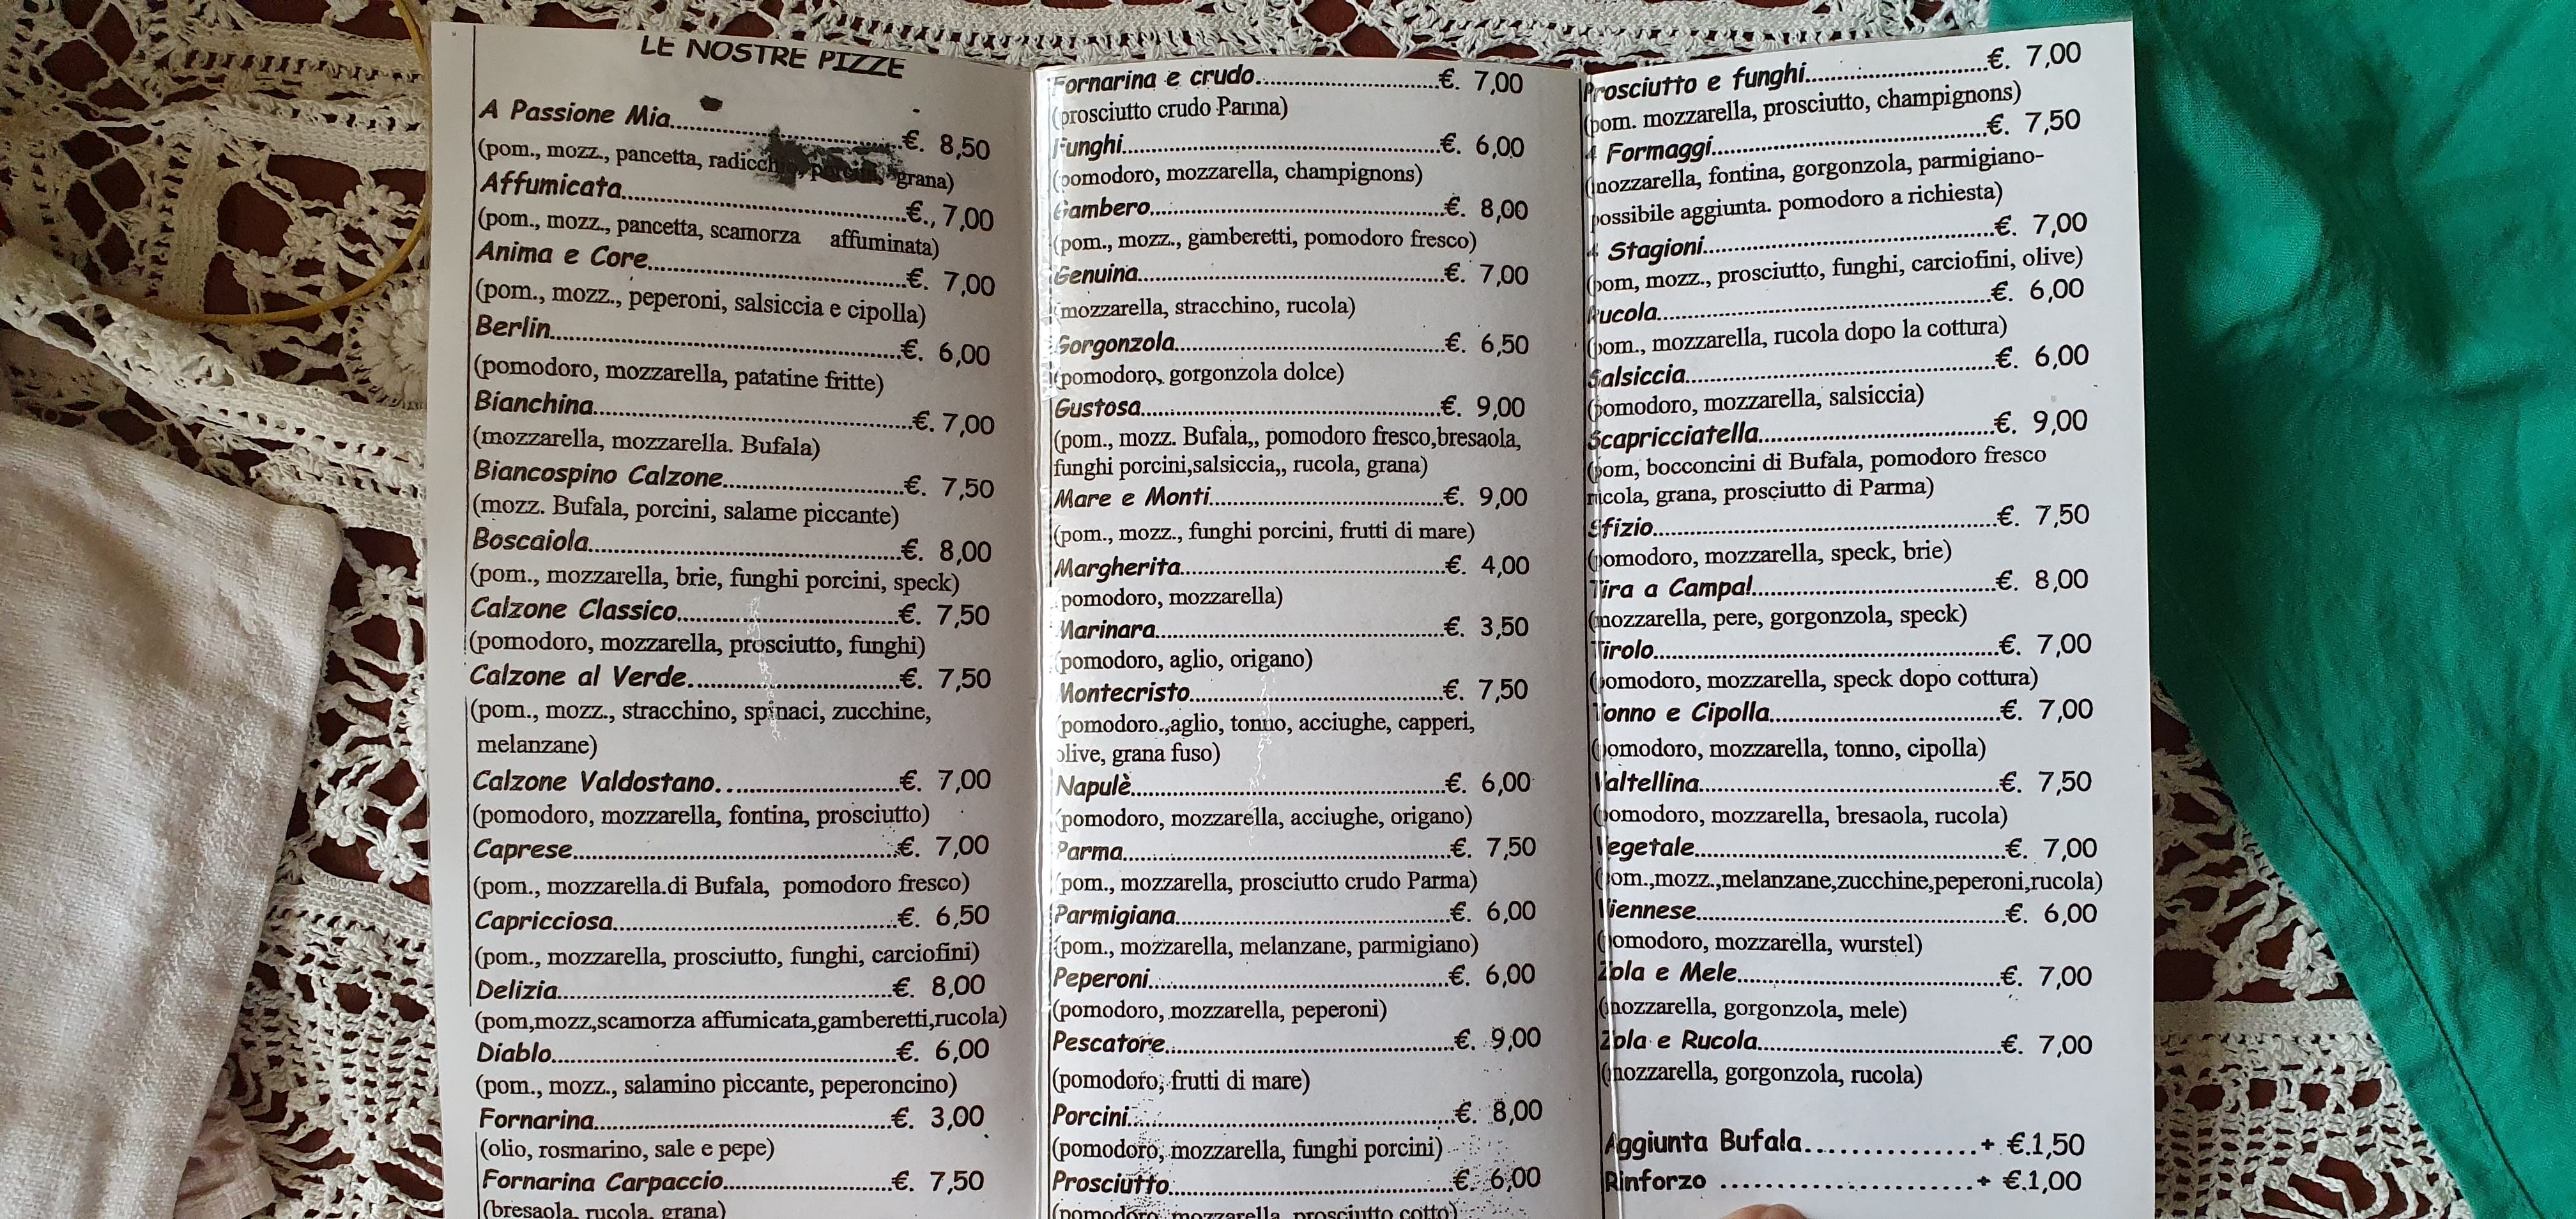 LE NOSTRE PIZZE
A Passione Mia..............................€. 8,50
(pom., mozz., pancetta, radicchio, porcini, grana)
Affumicata........................................€., 7,00
(pom., mozz., pancetta, scamorza affuminata)
Anima e Core....................................€. 7,00
(pom., mozz., peperoni, salsiccia e cipolla)
Berlin..................................................€. 6,00
(pomodoro, mozzarella, patatine fritte)
Bianchina.............................................€. 7,00
(mozzarella, mozzarella. Bufala)
Biancospino Calzone..........................€. 7,50
(mozz. Bufala, porcini, salame piccante)
Boscaiola.............................................€. 8,00
(pom., mozzarella, brie, funghi porcini, speck)
Calzone Classico................................€. 7,50
(pomodoro, mozzarella, prosciutto, funghi)
Calzone al Verde...............................€. 7,50
(pom., mozz., stracchino, spinaci, zucchine,
melanzane)
Calzone Valdostano..........................€. 7,00
(pomodoro, mozzarella, fontina, prosciutto)
Caprese...............................................€. 7,00
(pom., mozzarella.di Bufala, pomodoro fresco)
Capricciosa.........................................€. 6,50
(pom., mozzarella, prosciutto, funghi, carciofini)
Delizia.................................................€. 8,00
(pom,mozz,scamorza affumicata,gamberetti,rucola)
Diablo..................................................€. 6,00
(pom., mozz., salamino piccante, peperoncino)
Fornarina............................................€. 3,00
(olio, rosmarino, sale e pepe)
Fornarina Carpaccio.........................€. 7,50
(bresaola, rucola, grana)
Fornarina e crudo.............................€. 7,00
(prosciutto crudo Parma)
Funghi..................................................€. 6,00
(pomodoro, mozzarella, champignons)
Gambero..............................................€. 8,00
(pom., mozz., gamberetti, pomodoro fresco)
Genuina................................................€. 7,00
(mozzarella, stracchino, rucola)
Gorgonzola..........................................€. 6,50
(pomodoro, gorgonzola dolce)
Gustosa...............................................€. 9,00
(pom., mozz. Bufala,, pomodoro fresco,bresaola,
funghi porcini,salsiccia,, rucola, grana)
Mare e Monti....................................€. 9,00
(pom., mozz., funghi porcini, frutti di mare)
Margherita.........................................€. 4,00
pomodoro, mozzarella)
Marinara.............................................€. 3,50
(pomodoro, aglio, origano)
Montecristo........................................€. 7,50
(pomodoro.,aglio, tonno, acciughe, capperi,
olive, grana fuso)
Napulè..................................................€. 6,00
(pomodoro, mozzarella, acciughe, origano)
Parma....................................................€. 7,50
(pom., mozzarella, prosciutto crudo Parma)
Parmigiana...........................................€. 6,00
(pom., mozzarella, melanzane, parmigiano)
Peperoni...............................................€. 6,00
(pomodoro, mozzarella, peperoni)
Pescatore.............................................€. 9,00
(pomodoro, frutti di mare)
Porcini...................................................€. 8,00
(pomodoro, mozzarella, funghi porcini)
Prosciutto............................................€. 6,00
(pomodoro, mozzarella, prosciutto cotto)
Prosciutto e funghi............................€. 7,00
(pom. mozzarella, prosciutto, champignons)
4 Formaggi...........................................€. 7,50
(mozzarella, fontina, gorgonzola, parmigiano-
possibile aggiunta. pomodoro a richiesta)
4 Stagioni.............................................€. 7,00
(pom, mozz., prosciutto, funghi, carciofini, olive)
Rucola....................................................€. 6,00
(pom., mozzarella, rucola dopo la cottura)
Salsiccia...............................................€. 6,00
(pomodoro, mozzarella, salsiccia)
Scapricciatella...................................€. 9,00
(pom, bocconcini di Bufala, pomodoro fresco
rucola, grana, prosciutto di Parma)
Sfizio....................................................€. 7,50
(pomodoro, mozzarella, speck, brie)
Tira a Campa!.....................................€. 8,00
(mozzarella, pere, gorgonzola, speck)
Tirolo....................................................€. 7,00
(pomodoro, mozzarella, speck dopo cottura)
Tonno e Cipolla...................................€. 7,00
(pomodoro, mozzarella, tonno, cipolla)
Valtellina.............................................€. 7,50
(pomodoro, mozzarella, bresaola, rucola)
Vegetale...............................................€. 7,00
(pom.,mozz.,melanzane,zucchine,peperoni,rucola)
Viennese...............................................€. 6,00
(pomodoro, mozzarella, wurstel)
Zola e Mele.........................................€. 7,00
(mozzarella, gorgonzola, mele)
Zola e Rucola......................................€. 7,00
(mozzarella, gorgonzola, rucola)
Aggiunta Bufala................+ €.1,50
Rinforzo .......................+ €.1,00